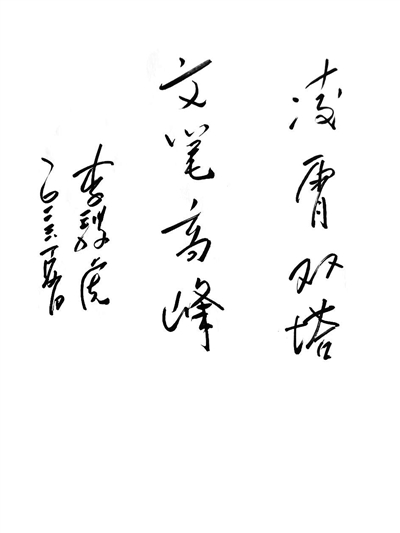 凌霄双塔
文笔高峰
李骏虎